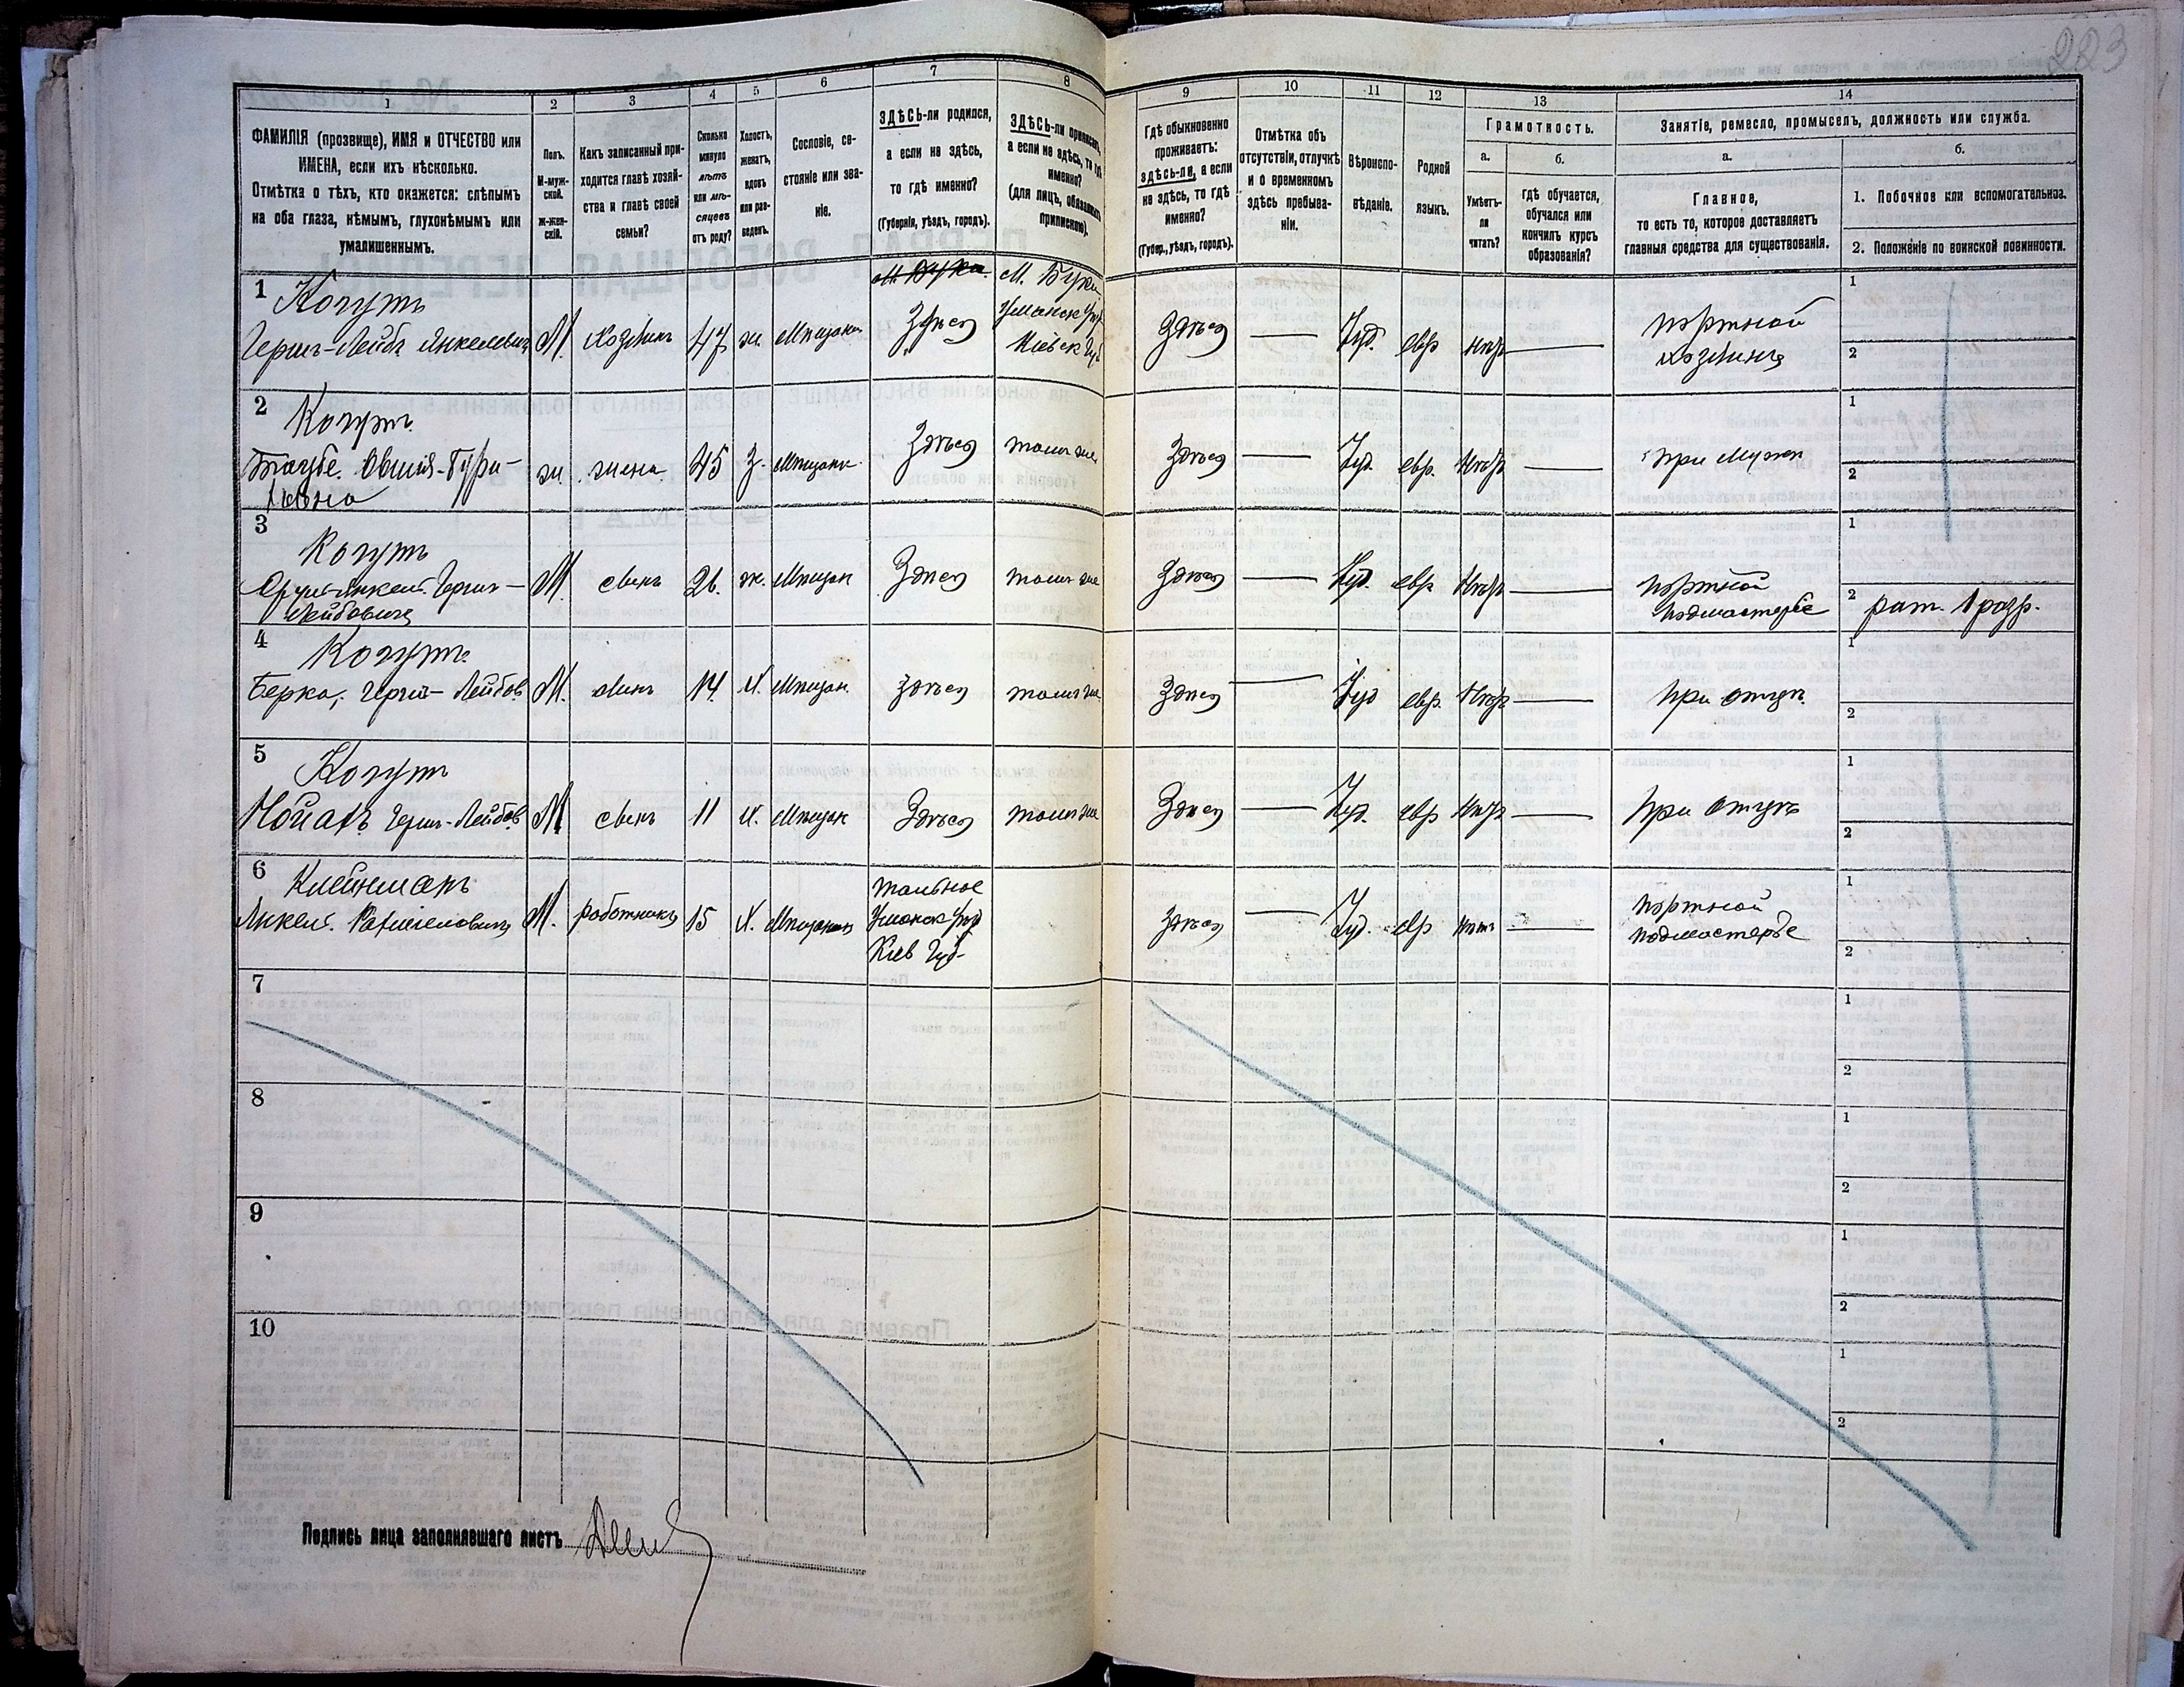 223
1
2
3
4
5
6
7
8
ФАМИЛІЯ (прозвище), ИМЯ и ОТЧЕСТВО или
ИМЕНА, если ихъ нѣсколько.
Отмѣтка о тѣхъ, кто окажется: слѣпымъ
на оба глаза, нѣмымъ, глухонѣмымъ или
умалишеннымъ.
Полъ.
М-муж-
ской.
Ж-жен-
скій.
Какъ записанный при-
ходится главѣ хозяй-
ства и главѣ своей
семьи?
Сколько
минуло
лѣтъ
или мѣ-
сяцевъ
отъ роду?
Холостъ,
женатъ,
вдовъ
или раз-
веденъ.
Сословіе, со-
стояніе или зва-
ніе.
ЗДѢСЬ-ли родился,
а если не здѣсь,
то гдѣ именно?
(Губернія, уѣздъ, городъ).
ЗДѢСЬ-ли приписанъ,
а если не здѣсь, то гдѣ
именно?
(для лицъ, обязанныхъ
припискою).
9
10
11
12
13
14
Гдѣ обыкновенно
проживаетъ:
здѣсь-ли, а если
не здѣсь, то гдѣ
именно?
(Губер., уѣздъ, городъ).
Отмѣтка объ
отсутствіи, отлучкѣ
и о временномъ
здѣсь пребыва-
ніи.
Вѣроиспо-
вѣданіе.
Родной
языкъ.
Грамотность.
а.
б.
Умѣетъ-
ли
читать?
гдѣ обучается,
обучался или
кончилъ курсъ
образованія?
Занятіе, ремесло, промыселъ, должность или служба.
а.
б.
Главное,
то есть то, которое доставляетъ
главныя средства для существованія.
1. Побочное или вспомогательное.
2. Положеніе по воинской повинности.
1
Когутъ
Гершъ-Лейба Янкелевичъ
М. хозяинъ 47 ж. Мѣщанинъ
М. Бука.
Здѣсь
М. Буки
Уманск уѣз
Кіевск Губ
Здѣсь — Іуд. евр нѣтъ —
портной
хозяинъ
1
2
2
Когутъ
ж. жена 45 З. мѣщанка Здѣсь тоже
Здѣсь — Іуд. евр. Нѣтъ — при мужѣ
1
2
3
Когутъ
Лейбовичъ
М сынъ 26. ж. Мѣщан Здѣсь
Здѣсь — Іуд. евр Нѣтъ —
портной
подмастерье
1
2 рат. 1 разр.
4
Когутъ
Берко, Гершъ-Лейбов
М. сынъ 14. Х. Мѣщан. здѣсь
Здѣсь — Іуд евр. Нѣтъ — при отцѣ.
1
2
5
Когут
Гершъ-Лейбов.
М сынъ 11 Х. Мѣщан Здѣсь
Здѣсь — Іуд. евр Нѣтъ — при отцѣ
1
2
6
Клейнманъ
М. работникъ 15 Х. Мѣщанинъ
Тальное
Уманск уѣзд
Кіев Губ.
здѣсь — Іуд. евр нѣтъ —
портной
подмастерье
1
2
7
1
2
8
1
2
9
1
2
10
1
2
Подпись лица заполнявшаго листъ